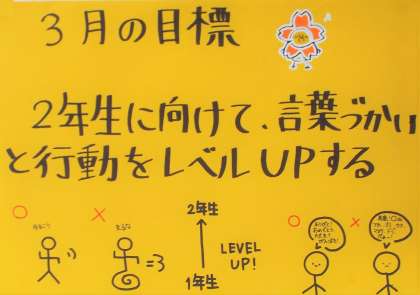 3月の目標
2年生に向けて、言葉づかい
と行動をレベルUPする
2年生
LEVEL
UP!
1年生